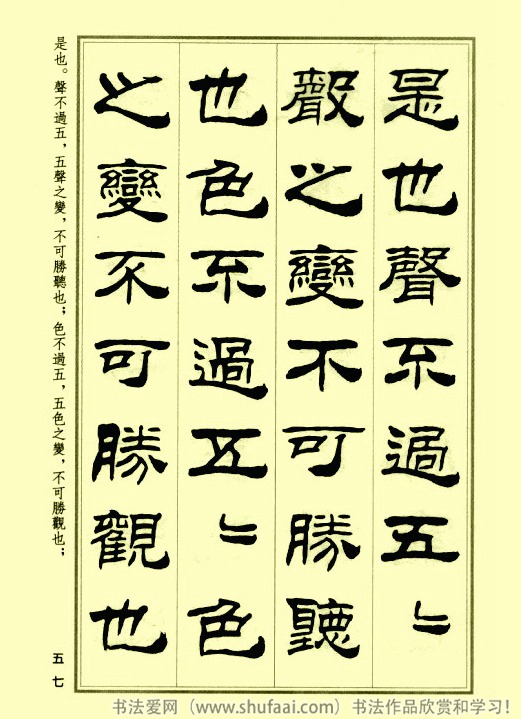 是也聲不過五〻
聲之變不可勝聽
也色不過五〻色
之變不可勝觀也
是也。聲不過五，五聲之變，不可勝聽也；色不過五，五色之變，不可勝觀也；
五七
书法爱网（www.shufaai.com）书法作品欣赏和学习！